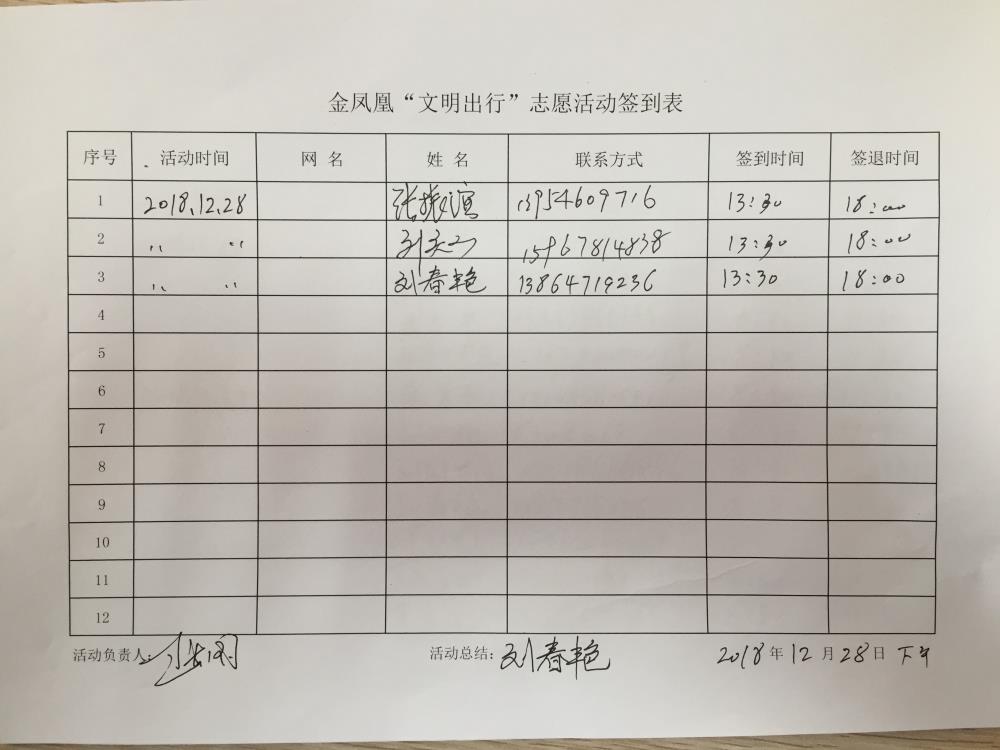 金凤凰“文明出行”志愿活动签到表
序号 活动时间 网 名 姓 名 联系方式 签到时间 签退时间
1 2018.12.28 张振谊 13954609716 13:30 18:00
2 〃 〃 刘 15967814838 13:30 18:00
3 〃 〃 刘春艳 13864719236 13:30 18:00
4
5
6
7
8
9
10
11
12
活动负责人: 活动总结: 刘春艳 2018年12月28日 下午